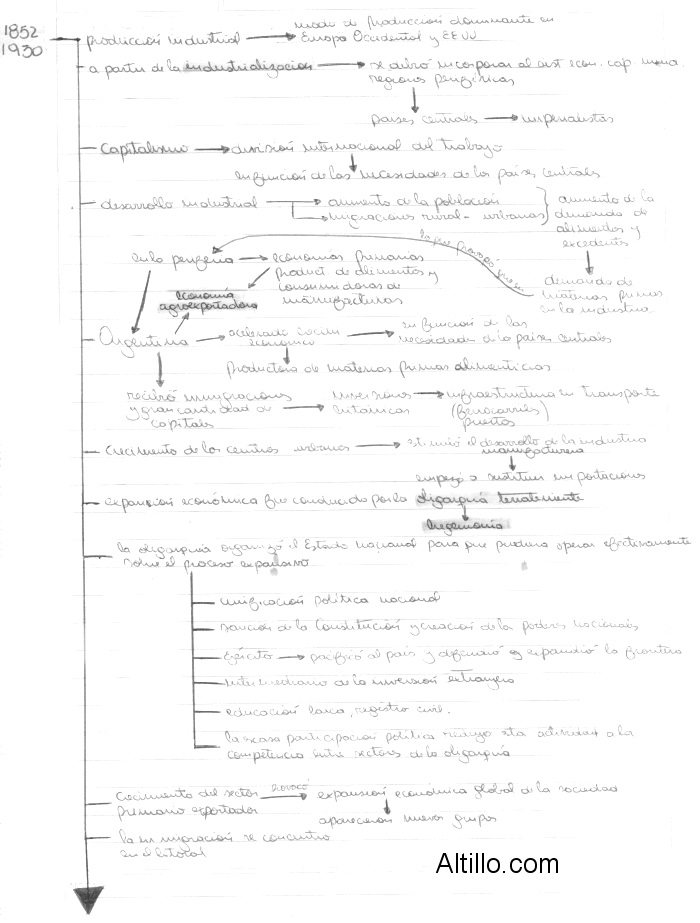 1852
1930
producción industrial → modo de producción dominante en
Europa Occidental y EEUU
a partir de la industrialización → se debió incorporar al sist. econ. cap. mundial
regiones periféricas
países centrales → imperialistas
Capitalismo → división internacional del trabajo
en función de las necesidades de los países centrales
desarrollo industrial → aumento de la población
→ migraciones rural-urbanas
aumento de la
demanda de
alimentos y
excedentes
lo que provocó que en
demanda de
materias primas
en la industria
en la periferia → economías primarias
product. de alimentos y
consumidoras de
manufacturas
economía
agroexportadora
Argentina → acelerado crecim.
económico
→ en función de las
necesidades de la países centrales
productora de materias primas alimenticias
recibió inmigraciones
y gran cantidad de
capitales
→ inversiones
británicas
→ infraestructura en transporte
(ferrocarriles)
puertos
crecimiento de los centros urbanos → estimuló el desarrollo de la industria
manufacturera
empezó a sustituir importaciones
expansión económica fue conducida por la oligarquía terrateniente
hegemonía
la oligarquía organizó el Estado Nacional para que pudiera operar efectivamente
sobre el proceso expansivo
unificación política nacional
sanción de la Constitución y creación de los poderes nacionales
Ejército → pacificó al país y defendió y expandió la frontera
intermediario de la inversión extranjera
educación laica, registro civil.
la escasa participación política redujo esta actividad a la
competencia entre sectores de la oligarquía
Crecimiento del sector
primario exportador
provocó → expansión económica global de la sociedad
aparecieron nuevos grupos
la inmigración se concentró
en el litoral
Altillo.com